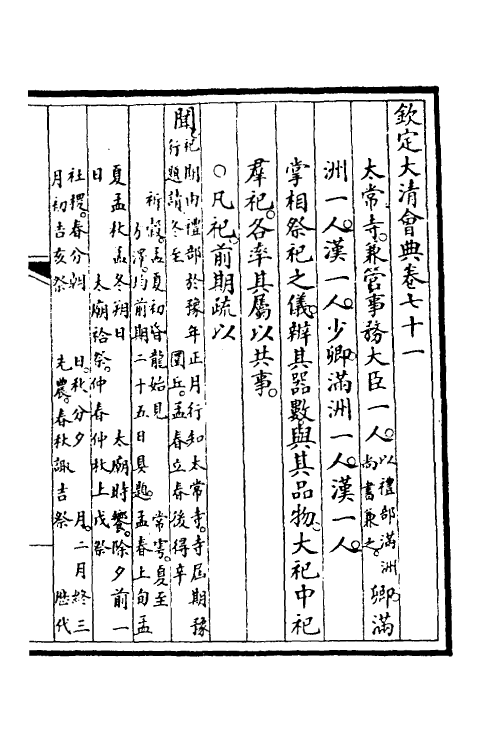 欽定大清會典卷七十一
太常寺。兼管事務大臣一人。以禮部滿洲尚書兼之。卿滿
洲一人。漢一人。少卿滿洲一人。漢一人。
掌相祭祀之儀。辨其器數。與其品物。大祀中祀
羣祀。各率其屬以共事。
○凡祀。前期疏以
聞祀開內禮部於豫年正月行知太常寺。寺屆期豫
行題請。冬至 圜丘。孟春立春後得辛
祈穀。孟夏初昏龍始見 常雩。夏至
方澤。均前期二十五日具題。孟春上旬孟
夏孟秋孟冬朔日 太廟時饗。除夕前一
日 太廟祫祭。仲春仲秋上戊祭
社稷。春分朝 日。秋分夕 月。二月終三
月初吉亥祭 先農。春秋諏吉祭 歷代